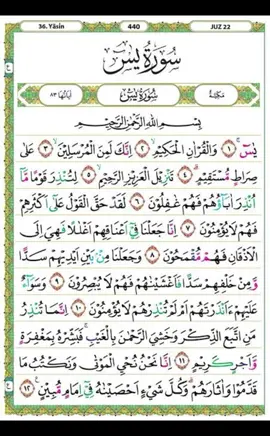 36. Yâsin 440 JUZ 22
سُورَةُ يٰسٓ
مَكِّيَّةٌ سُورَةُ يٰسٓ اٰيَاتُهَا ٨٣
بِسْمِ اللّٰهِ الرَّحْمٰنِ الرَّحِيْمِ
يٰسٓ ۝١ وَالْقُرْاٰنِ الْحَكِيْمِ ۝٢ اِنَّكَ لَمِنَ الْمُرْسَلِيْنَ ۝٣ عَلٰى
صِرَاطٍ مُّسْتَقِيْمٍ ۝٤ تَنْزِيْلَ الْعَزِيْزِ الرَّحِيْمِ ۝٥ لِتُنْذِرَ قَوْمًا مَّآ
اُنْذِرَ اٰبَاۤؤُهُمْ فَهُمْ غٰفِلُوْنَ ۝٦ لَقَدْ حَقَّ الْقَوْلُ عَلٰٓى اَكْثَرِهِمْ
فَهُمْ لَا يُؤْمِنُوْنَ ۝٧ اِنَّا جَعَلْنَا فِيْٓ اَعْنَاقِهِمْ اَغْلٰلًا فَهِيَ اِلَى
الْاَذْقَانِ فَهُمْ مُّقْمَحُوْنَ ۝٨ وَجَعَلْنَا مِنْۢ بَيْنِ اَيْدِيْهِمْ سَدًّا
وَّمِنْ خَلْفِهِمْ سَدًّا فَاَغْشَيْنٰهُمْ فَهُمْ لَا يُبْصِرُوْنَ ۝٩ وَسَوَاۤءٌ
عَلَيْهِمْ ءَاَنْذَرْتَهُمْ اَمْ لَمْ تُنْذِرْهُمْ لَا يُؤْمِنُوْنَ ۝١٠ اِنَّمَا تُنْذِرُ
مَنِ اتَّبَعَ الذِّكْرَ وَخَشِيَ الرَّحْمٰنَ بِالْغَيْبِۚ فَبَشِّرْهُ بِمَغْفِرَةٍ
وَّاَجْرٍ كَرِيْمٍ ۝١١ اِنَّا نَحْنُ نُحْيِ الْمَوْتٰى وَنَكْتُبُ مَا
قَدَّمُوْا وَاٰثَارَهُمْۗ وَكُلَّ شَيْءٍ اَحْصَيْنٰهُ فِيْٓ اِمَامٍ مُّبِيْنٍ ۝١٢